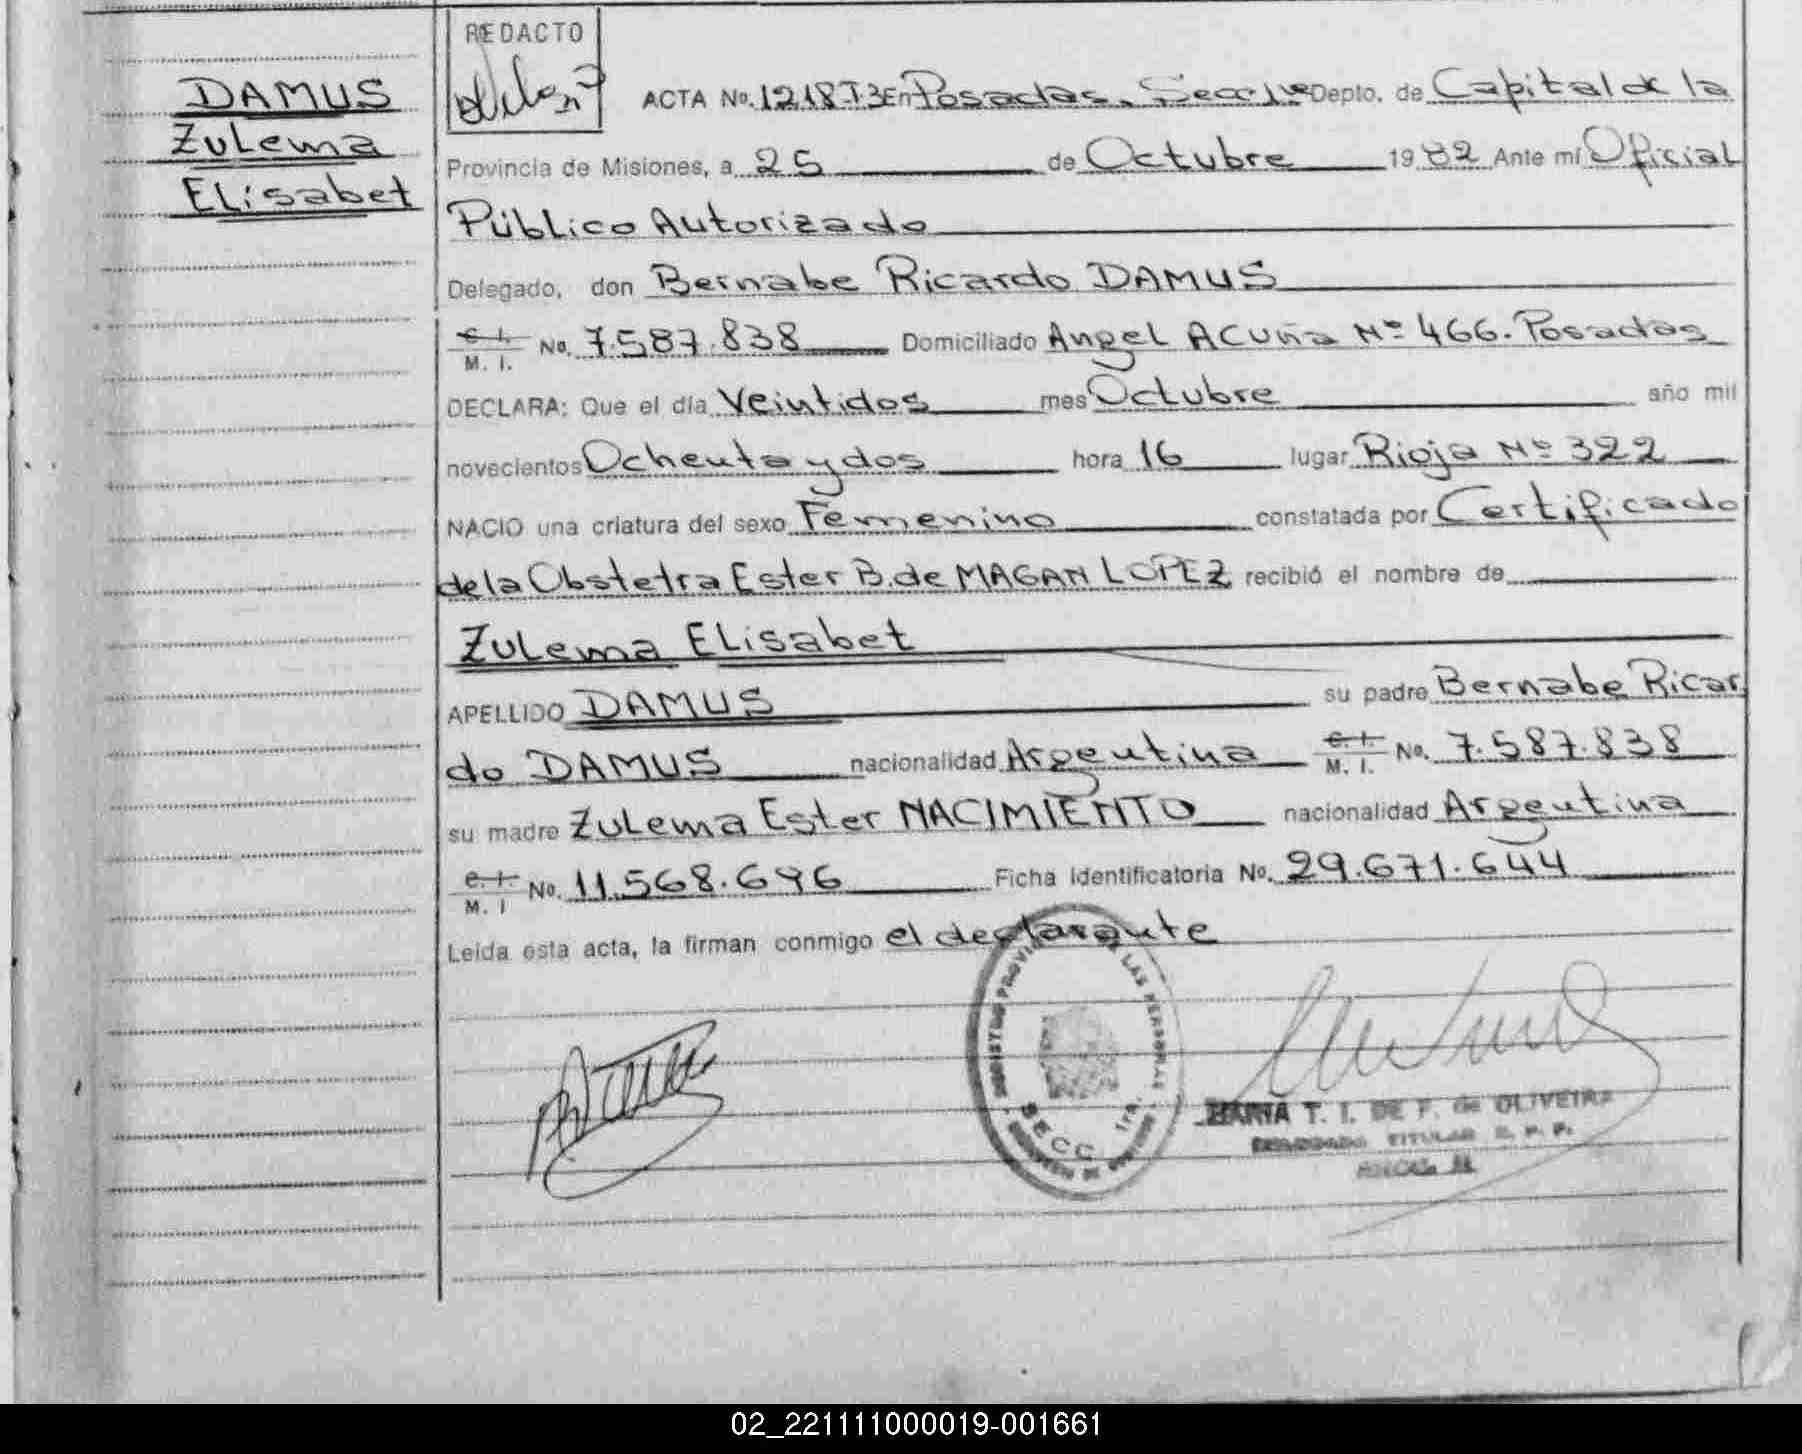 DAMUS
Zulema
Elisabet
REDACTO
ACTA No. 1218 T3 En Posadas, Secc 1ª Depto. de Capital de la
Provincia de Misiones, a 25 de Octubre 1982 Ante mí Oficial
Público Autorizado
Delegado, don Bernabe Ricardo DAMUS
C. I. M. I. No. 7.587.838 Domiciliado Angel Acuña Nº 466. Posadas
DECLARA: Que el día Veintidos mes Octubre año mil
novecientos Ochenta y dos hora 16 lugar Rioja Nº 322
NACIO una criatura del sexo Femenino constatada por Certificado
de la Obstetra Ester B. de MAGAN LOPEZ recibió el nombre de
Zulema Elisabet
APELLIDO DAMUS su padre Bernabe Ricar
do DAMUS nacionalidad Argentina C. I. M. I. No. 7.587.838
su madre Zulema Ester NACIMIENTO nacionalidad Argentina
C. I. M. I No. 11.568.696 Ficha Identificatoria No. 29.671.644
Leída esta acta, la firman conmigo el declarante
REGISTRO PROVINCIAL DE LAS PERSONAS
SECC. 1ra.
MARIA T. I. DE F. de OLIVEIRA
DELEGADA TITULAR R. P. P.
02_221111000019-001661